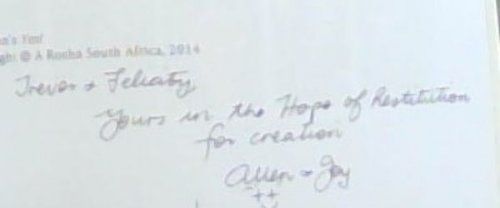 on's Yes!
ght @ A Rocha South Africa, 2014
Trevor & Felicity
Yours in the Hope of Restitution
for creation
Allen & Joy
++